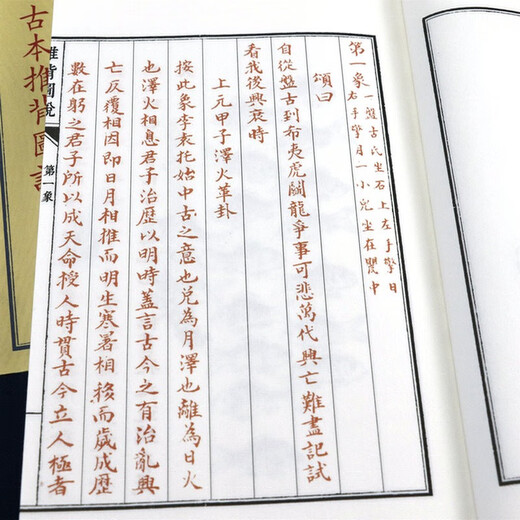 第一象
一盤古氏坐石上左手擎日
右手擎月一小兒坐在甖中
頌曰
自從盤古到布夷虎鬭龍爭事可悲萬代興亡難盡記試
看我後興衰時
上元甲子澤火革卦
按此象李袁托始中古之意也兑為月澤也離為日火
也澤火相息君子治歷以明時蓋言古今之有治亂興
亡反覆相因即日月相推而明生寒暑相移而歲成歷
數在躬之君子所以成天命授人時貫古今立人極者
推背圖說
第一象
古本推背圖說